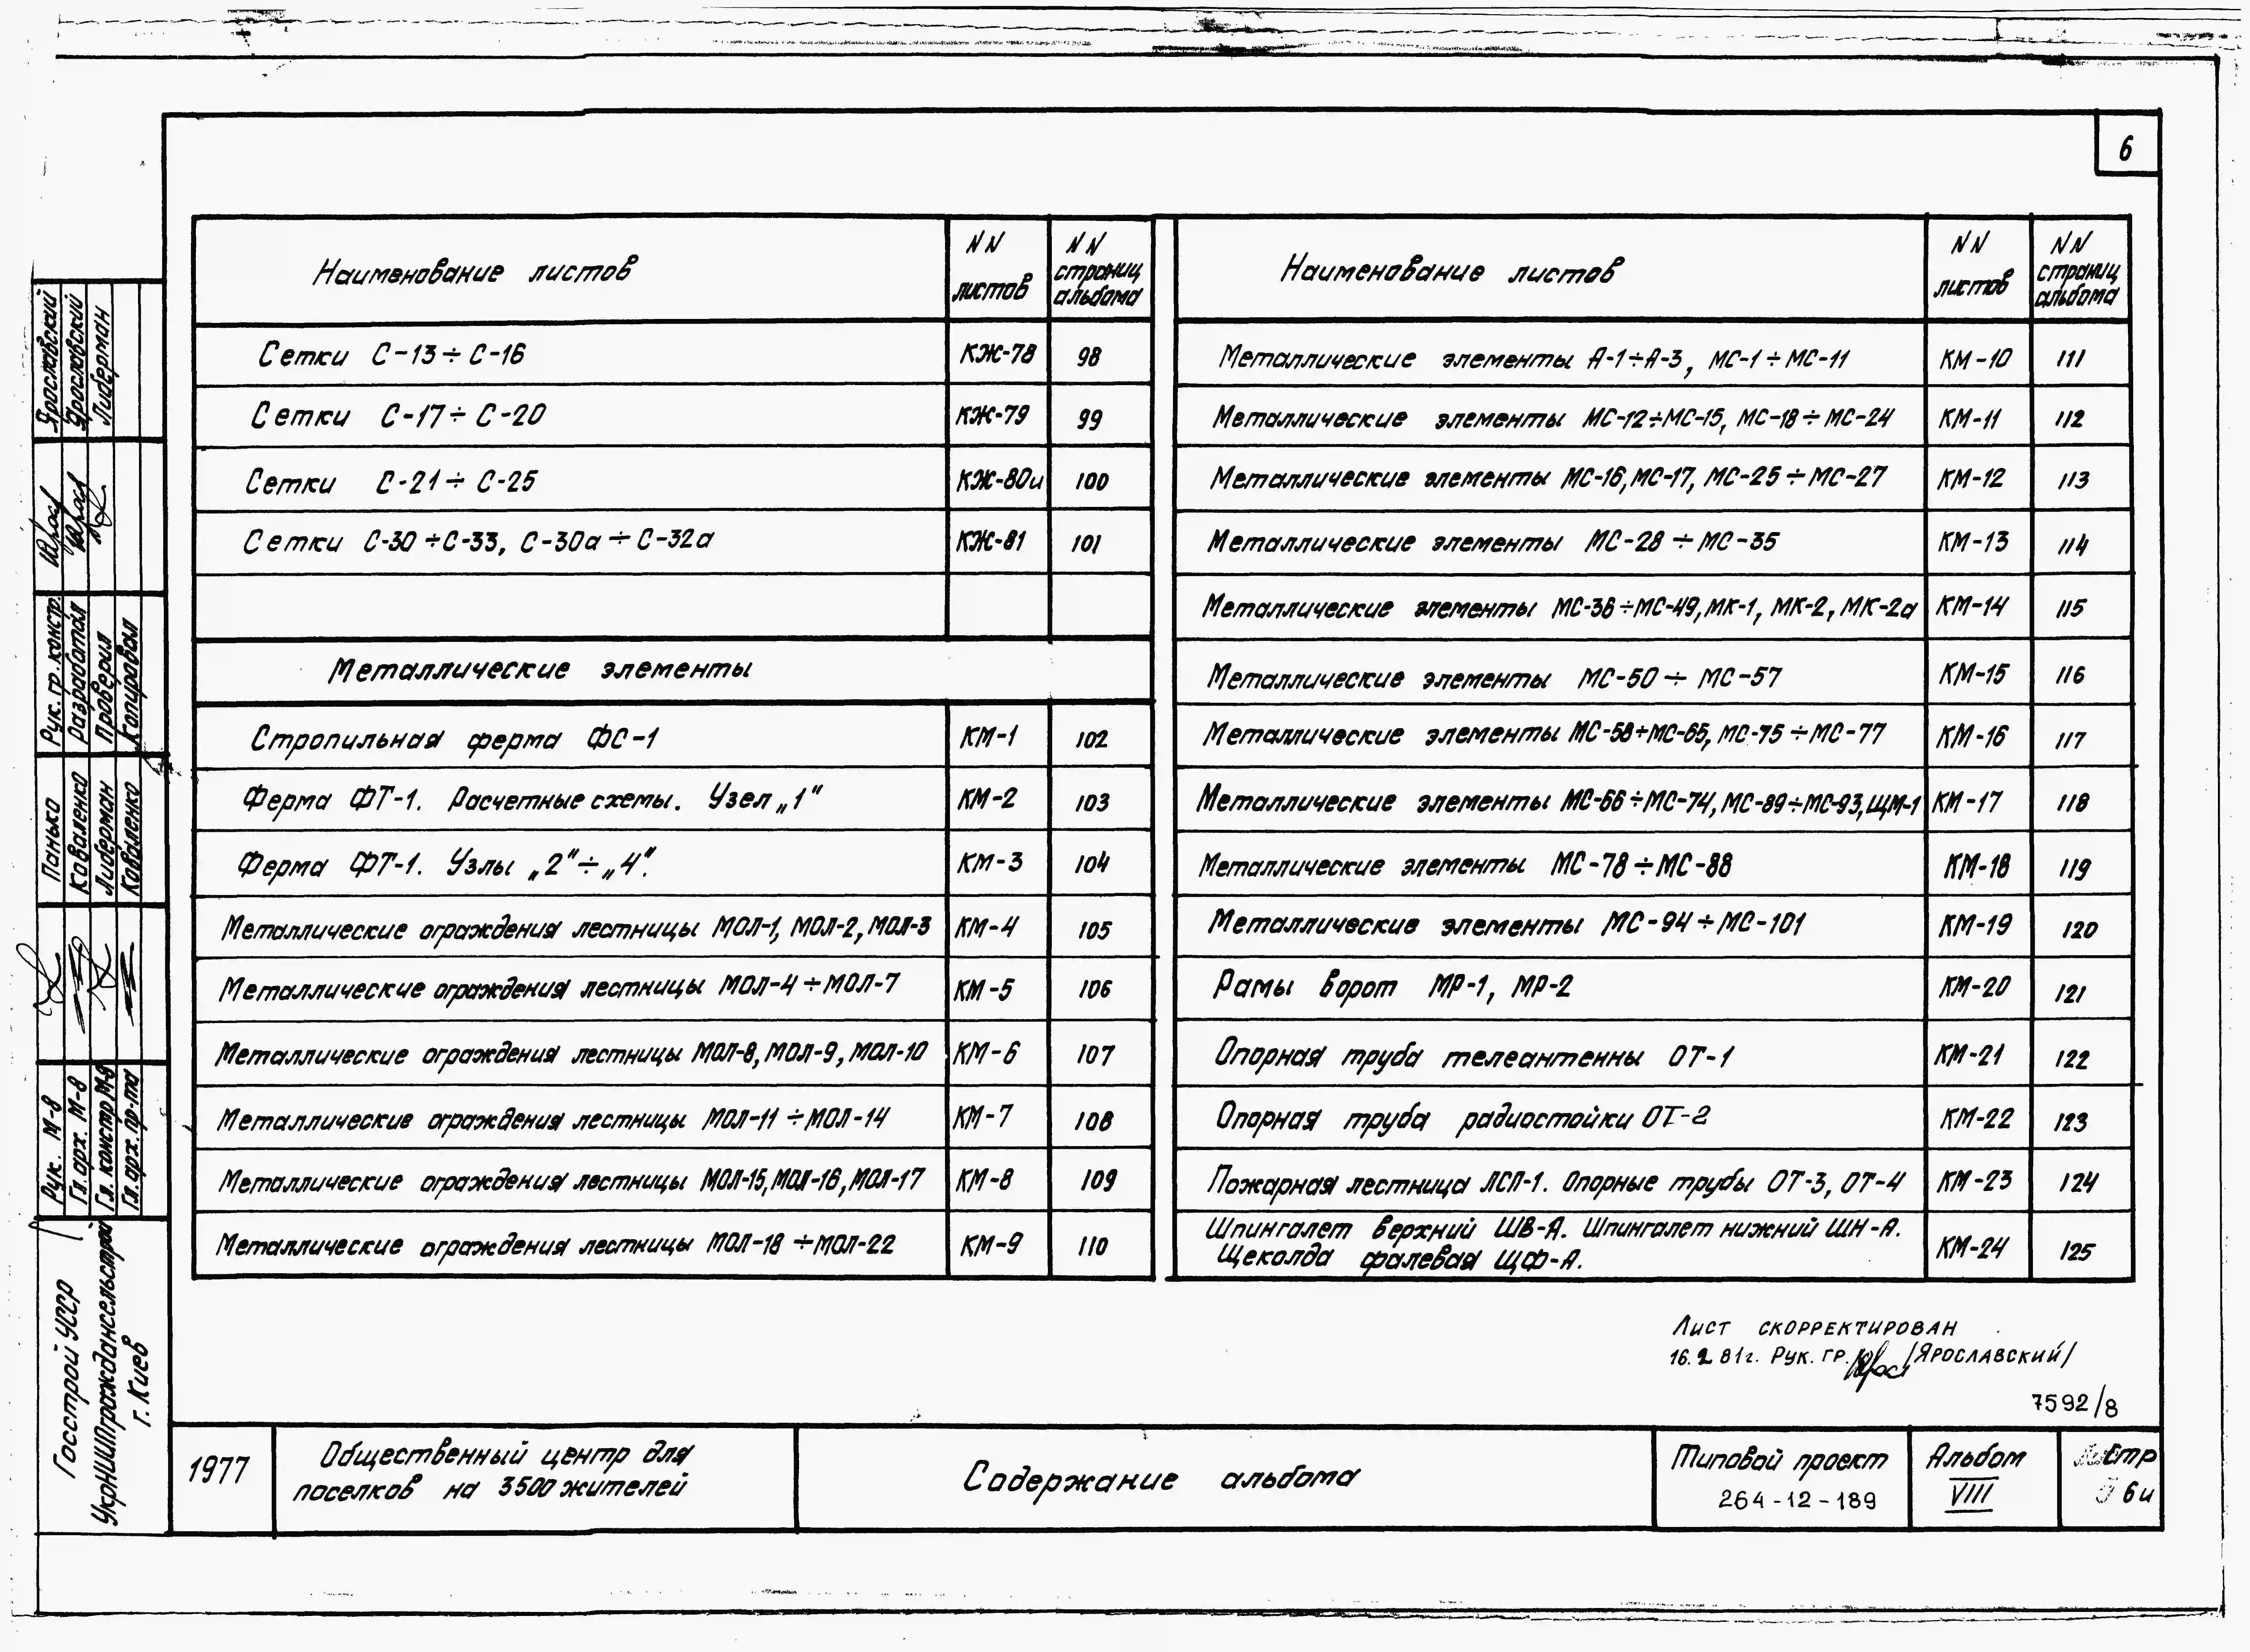 6
Наименование листов | NN листов | NN страниц альбома
Сетки С-13÷С-16 | КЖ-78 | 98
Сетки С-17÷С-20 | КЖ-79 | 99
Сетки С-21÷С-25 | КЖ-80и | 100
Сетки С-30÷С-33, С-30а÷С-32а | КЖ-81 | 101
Металлические элементы
Стропильная ферма ФС-1 | КМ-1 | 102
Ферма ФТ-1. Расчетные схемы. Узел „1" | КМ-2 | 103
Ферма ФТ-1. Узлы „2"÷„4". | КМ-3 | 104
Металлические ограждения лестницы МОЛ-1, МОЛ-2, МОЛ-3 | КМ-4 | 105
Металлические ограждения лестницы МОЛ-4÷МОЛ-7 | КМ-5 | 106
Металлические ограждения лестницы МОЛ-8, МОЛ-9, МОЛ-10 | КМ-6 | 107
Металлические ограждения лестницы МОЛ-11÷МОЛ-14 | КМ-7 | 108
Металлические ограждения лестницы МОЛ-15, МОЛ-16, МОЛ-17 | КМ-8 | 109
Металлические ограждения лестницы МОЛ-18÷МОЛ-22 | КМ-9 | 110
Наименование листов | NN листов | NN страниц альбома
Металлические элементы А-1÷А-3, МС-1÷МС-11 | КМ-10 | 111
Металлические элементы МС-12÷МС-15, МС-18÷МС-24 | КМ-11 | 112
Металлические элементы МС-16, МС-17, МС-25÷МС-27 | КМ-12 | 113
Металлические элементы МС-28÷МС-35 | КМ-13 | 114
Металлические элементы МС-36÷МС-49, МК-1, МК-2, МК-2а | КМ-14 | 115
Металлические элементы МС-50÷МС-57 | КМ-15 | 116
Металлические элементы МС-58÷МС-65, МС-75÷МС-77 | КМ-16 | 117
Металлические элементы МС-66÷МС-74, МС-89÷МС-93, ЩМ-1 | КМ-17 | 118
Металлические элементы МС-78÷МС-88 | КМ-18 | 119
Металлические элементы МС-94÷МС-101 | КМ-19 | 120
Рамы ворот МР-1, МР-2 | КМ-20 | 121
Опорная труба телеантенны ОТ-1 | КМ-21 | 122
Опорная труба радиостойки ОТ-2 | КМ-22 | 123
Пожарная лестница ЛСП-1. Опорные трубы ОТ-3, ОТ-4 | КМ-23 | 124
Шпингалет верхний ШВ-А. Шпингалет нижний ШН-А.
Щеколда фалевая ЩФ-А. | КМ-24 | 125
Лист скорректирован
16.2.81г. Рук. гр. /Ярославский/
7592/8
1977
Общественный центр для
поселков на 3500 жителей
Содержание альбома
Типовой проект
264-12-189
Альбом
VIII
Стр
6и
Рук. гр. констр. Ярославский
Разработал Ярославский
Проверил Либерман
Копировал
Рук. М-8 Панько
Гл. арх. М-8 Коваленко
Гл. констр М-8 Либерман
Гл. арх. пр-та Коваленко
Госстрой УССР
УкрНИИПграждансельстрой
г. Киев